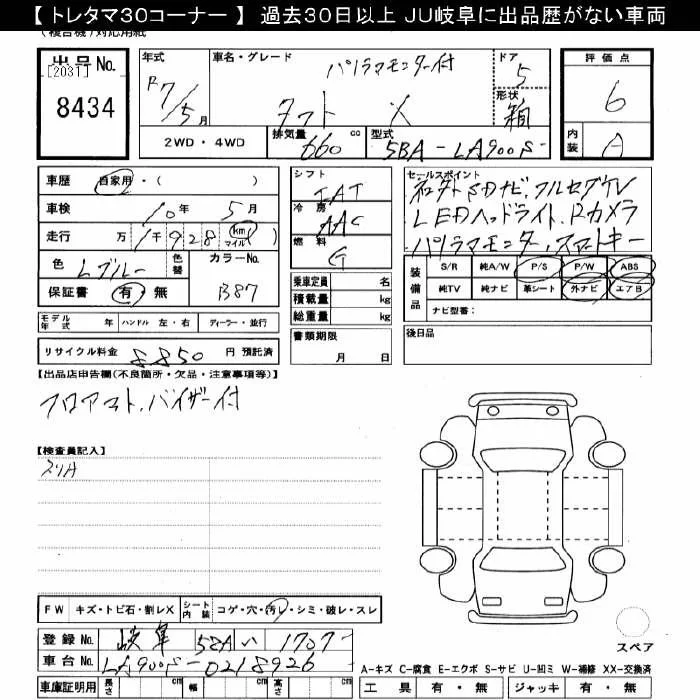 【 トレタマ30コーナー 】 過去30日以上 JU岐阜に出品歴がない車両
(複合機)対応用紙
出品No. [2031] 8434
年式 R7/5月
車名・グレード パノラマモニター付 タフト X
ドア 5
形状 箱
評価点 6
内装 A
2WD・4WD
排気量 660 cc
型式 5BA-LA900S-
車歴 自家用・( )
車検 10年 5月
走行 万 1千928 km マイル
色 Lブルー 色替
カラーNo. B87
保証書 有・無
モデル年式 年 ハンドル 左・右 ディーラー・並行
リサイクル料金 8850 円 預託済
シフト IAT
冷房 AAC
燃料 G
乗車定員 名
積載量 kg
総重量 kg
書類期限 月 日
セールスポイント
SDナビ,フルセグTV
LEDヘッドライト,Rカメラ
パノラマモニター,スマートキー
装備品
S/R 純A/W P/S P/W ABS
純TV 純ナビ 革シート 外ナビ エアB
ナビ型番:
後日品
【出品店申告欄(不良箇所・欠品・注意事項等)】
フロアマット,バイザー付
【検査員記入】
スリA
FW キズ・トビ石・割レX シート内装 コゲ・穴・汚レ・シミ・破レ・スレ
登録No. 岐阜 58A い 1707
車台No. LA900S-0218926
車庫証明用 長さ cm 幅 cm 高さ cm
スペア
A-キズ C-腐食 E-エクボ S-サビ U-凹ミ W-補修 XX-交換済
工具 有・無 ジャッキ 有・無